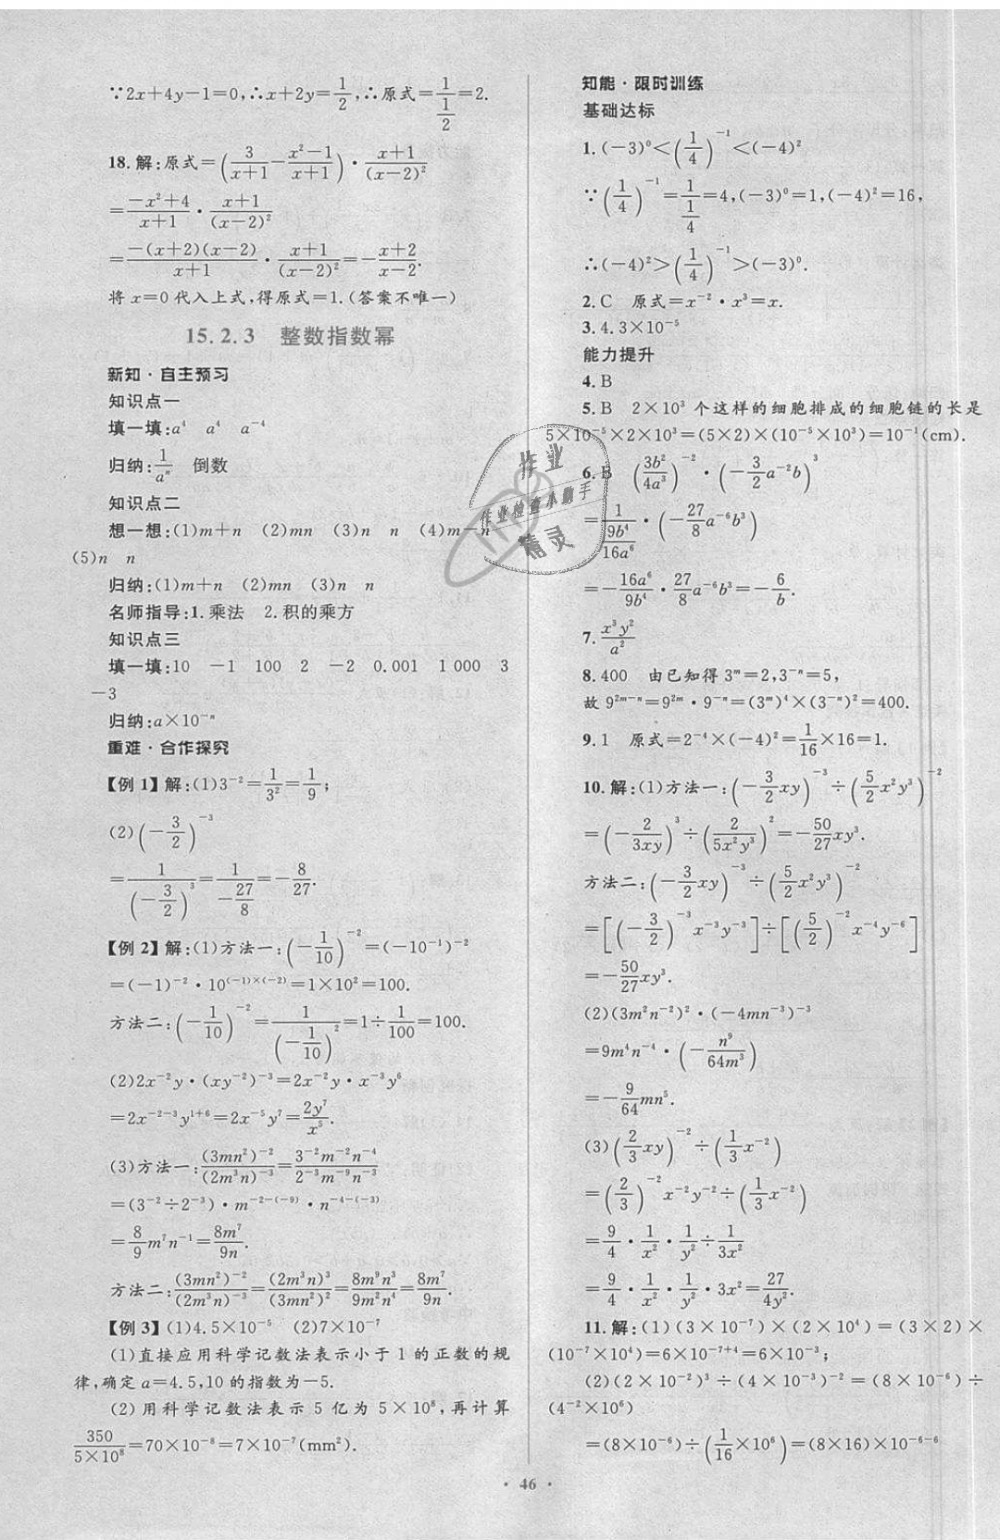 ∵2x+4y−1=0,∴x+2y=1/2,∴原式=1/(1/2)=2.
18.解:原式=(3/(x+1)−(x²−1)/(x+1))·(x+1)/(x−2)²
=(−x²+4)/(x+1)·(x+1)/(x−2)²
=(−(x+2)(x−2))/(x+1)·(x+1)/(x−2)²=−(x+2)/(x−2).
将 x=0 代入上式,得原式=1.(答案不唯一)
15.2.3 整数指数幂
新知·自主预习
知识点一
填一填:a⁴ a⁴ a⁻⁴
归纳:1/aⁿ 倒数
知识点二
想一想:(1)m+n (2)mn (3)n n (4)m−n
(5)n n
归纳:(1)m+n (2)mn (3)n n
名师指导:1.乘法 2.积的乘方
知识点三
填一填:10 −1 100 2 −2 0.001 1 000 3
−3
归纳:a×10⁻ⁿ
重难·合作探究
【例 1】解:(1)3⁻²=1/3²=1/9;
(2)(−3/2)⁻³
=1/(−3/2)³=1/(−27/8)=−8/27.
【例 2】解:(1)方法一:(−1/10)⁻²=(−10⁻¹)⁻²
=(−1)⁻²·10^((−1)×(−2))=1×10²=100.
方法二:(−1/10)⁻²=1/(−1/10)²=1÷1/100=100.
(2)2x⁻²y·(xy⁻²)⁻³=2x⁻²y·x⁻³y⁶
=2x⁻²⁻³y¹⁺⁶=2x⁻⁵y⁷=2y⁷/x⁵.
(3)方法一:(3mn²)⁻²/(2m³n)⁻³=3⁻²m⁻²n⁻⁴/2⁻³m⁻⁹n⁻³
=(3⁻²÷2⁻³)·m^(−2−(−9))·n^(−4−(−3))
=8/9 m⁷n⁻¹=8m⁷/9n.
方法二:(3mn²)⁻²/(2m³n)⁻³=(2m³n)³/(3mn²)²=8m⁹n³/9m²n⁴=8m⁷/9n.
【例 3】(1)4.5×10⁻⁵ (2)7×10⁻⁷
(1)直接应用科学记数法表示小于 1 的正数的规
律,确定 a=4.5,10 的指数为−5.
(2)用科学记数法表示 5 亿为 5×10⁸,再计算
350/(5×10⁸)=70×10⁻⁸=7×10⁻⁷(mm²).
知能·限时训练
基础达标
1.(−3)⁰<(1/4)⁻¹<(−4)²
∵(1/4)⁻¹=1/(1/4)=4,(−3)⁰=1,(−4)²=16,
∴(−4)²>(1/4)⁻¹>(−3)⁰.
2.C 原式=x⁻²·x³=x.
3.4.3×10⁻⁵
能力提升
4.B
5.B 2×10³ 个这样的细胞排成的细胞链的长是
5×10⁻⁵×2×10³=(5×2)×(10⁻⁵×10³)=10⁻¹(cm).
6.B (3b²/4a³)⁻²·(−3/2 a⁻²b)³
=1/(9b⁴/16a⁶)·(−27/8 a⁻⁶b³)
=−16a⁶/9b⁴·27/8 a⁻⁶b³=−6/b.
7.x³y²/a²
8.400 由已知得 3ᵐ=2,3⁻ⁿ=5,
故 9²ᵐ⁻ⁿ=9²ᵐ·9⁻ⁿ=(3ᵐ)⁴×(3⁻ⁿ)²=400.
9.1 原式=2⁻⁴×(−4)²=1/16×16=1.
10.解:(1)方法一:(−3/2 xy)⁻³÷(5/2 x²y³)⁻²
=(−2/3xy)³÷(2/5x²y³)²=−50/27 xy³.
方法二:(−3/2 xy)⁻³÷(5/2 x²y³)⁻²
=[(−3/2)⁻³x⁻³y⁻³]÷[(5/2)⁻²x⁻⁴y⁻⁶]
=−50/27 xy³.
(2)(3m²n⁻²)²·(−4mn⁻³)⁻³
=9m⁴n⁻⁴·(−n⁹/64m³)
=−9/64 mn⁵.
(3)(2/3 xy)⁻²÷(1/3 x⁻²)
=(2/3)⁻²x⁻²y⁻²÷(1/3 x⁻²)
=9/4·1/x²·1/y²÷1/3x²
=9/4·1/x²·1/y²·3x²=27/4y².
11.解:(1)(3×10⁻⁷)×(2×10⁴)=(3×2)×
(10⁻⁷×10⁴)=6×10⁻⁷⁺⁴=6×10⁻³;
(2)(2×10⁻²)³÷(4×10⁻³)⁻²=(8×10⁻⁶)÷
(4⁻²×10⁶)
=(8×10⁻⁶)÷(1/16×10⁶)=(8×16)×10⁻⁶⁻⁶
·46·
作业
作业检查小助手
精灵